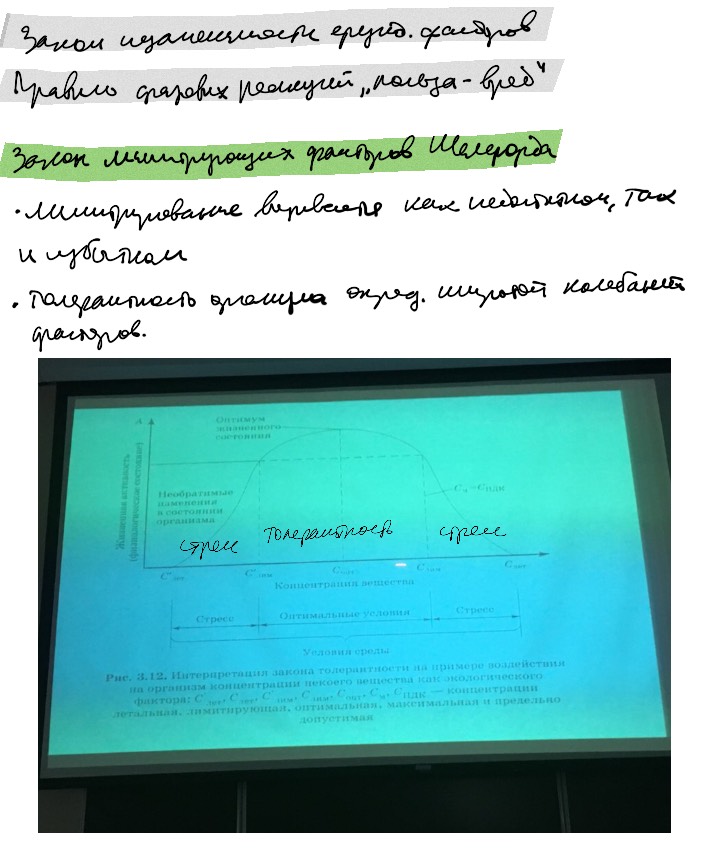 Закон незаменимости фунд. факторов
Правило фазовых реакций „польза - вред"
Закон лимитирующих факторов Шелфорда
· Лимитирование вызывается как недостатком, так
и избытком
· Толерантность организма опред. широтой колебаний
факторов.
A
Оптимум
жизненного
состояния
Жизненная активность
(физиологическое состояние)
Необратимые
изменения
в состоянии
организма
Cм=CПДК
стресс толерантность стресс
Концентрация вещества
Стресс Оптимальные условия Стресс
Условия среды
Рис. 3.12. Интерпретация закона толерантности на примере воздействия
на организм концентрации некоего вещества как экологического
фактора: C'лет, Cлет, C'лим, Cлим, Cопт, Cм, CПДК — концентрации
летальная, лимитирующая, оптимальная, максимальная и предельно
допустимая